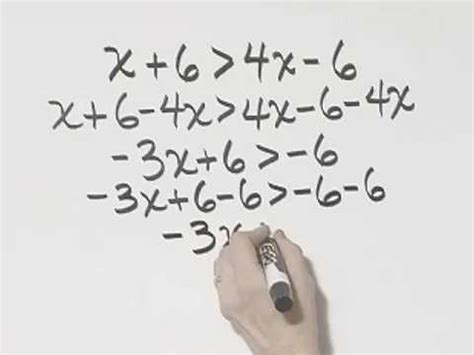 x+6>4x-6
x+6-4x>4x-6-4x
-3x+6>-6
-3x+6-6>-6-6
-3x